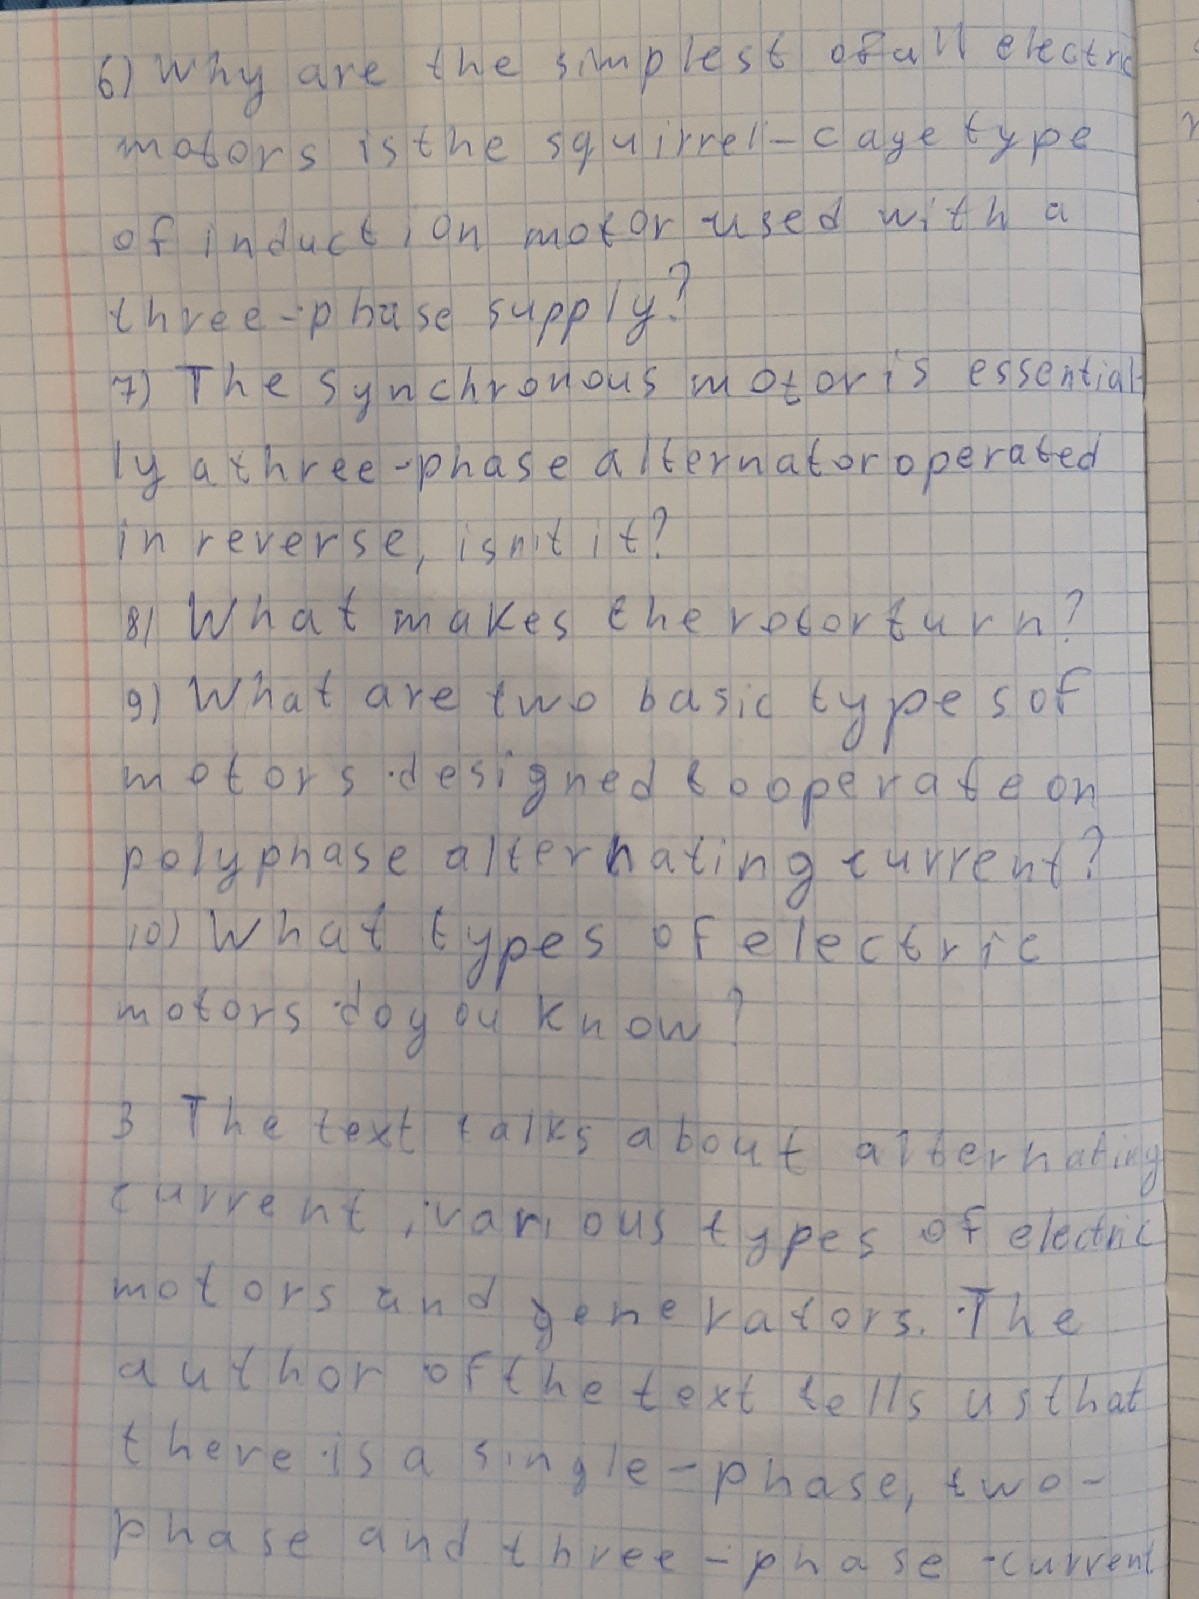 6) Why are the simplest of all electric
motors is the squirrel-cage type
of induction motor used with a
three-phase supply?
7) The synchronous motor is essential-
ly a three-phase alternator operated
in reverse, isn't it?
8) What makes the rotor turn?
9) What are two basic types of
motors designed to operate on
polyphase alternating current?
10) What types of electric
motors do you know?
3 The text talks about alternating
current, various types of electric
motors and generators. The
author of the text tells us that
there is a single-phase, two-
phase and three-phase current